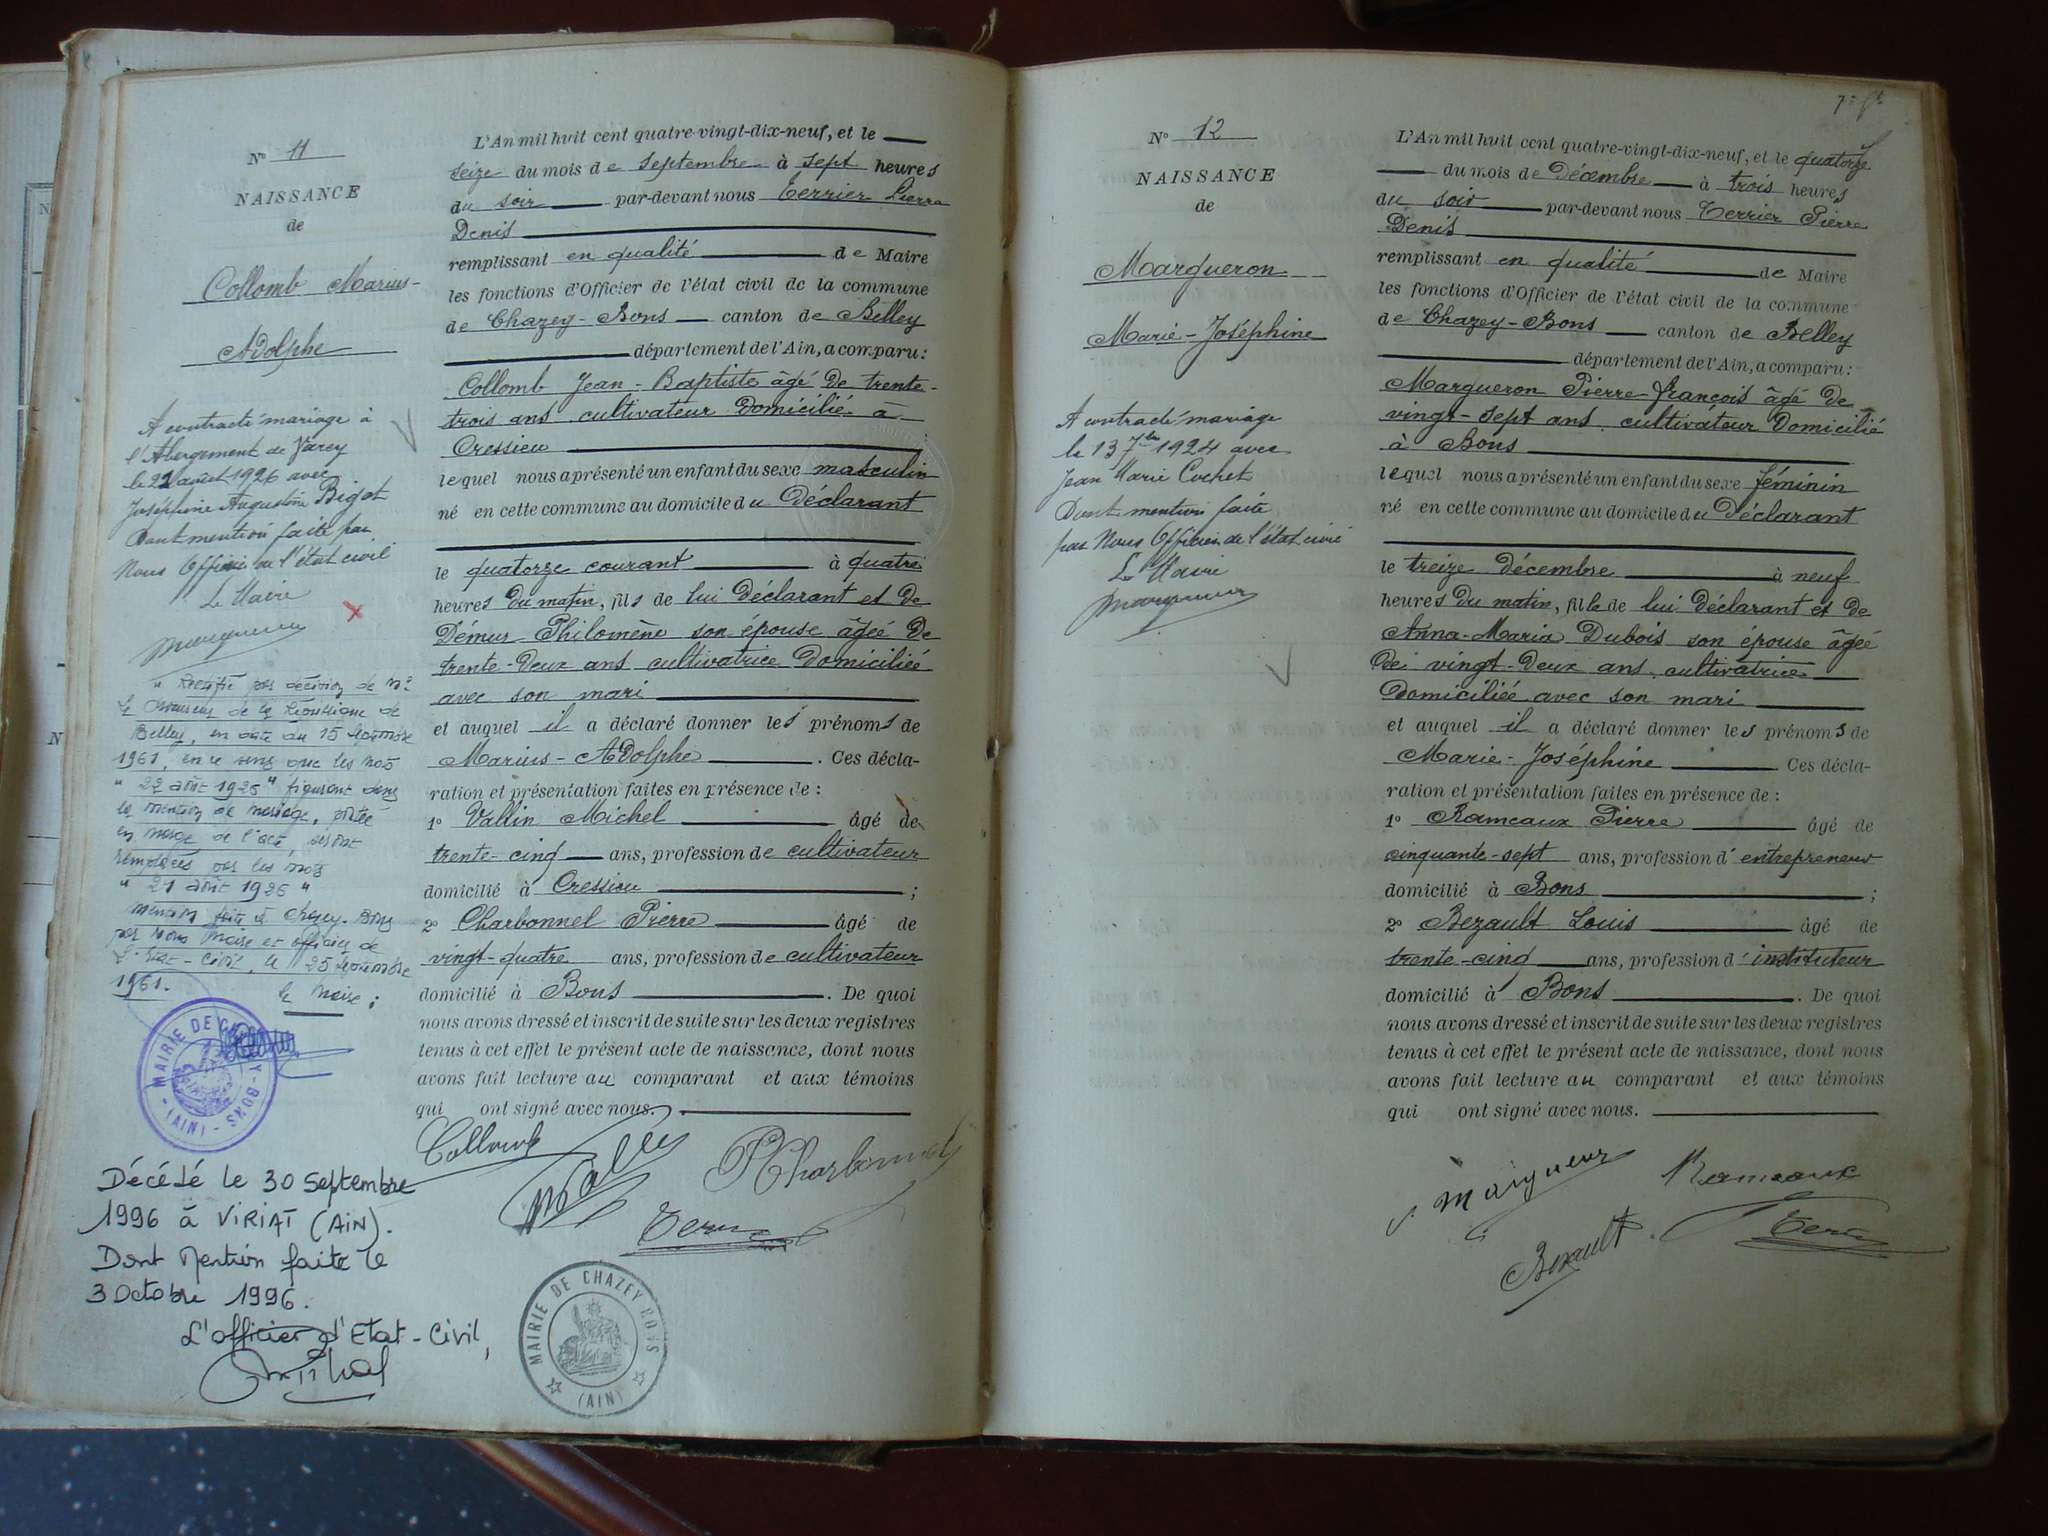 N° 11
NAISSANCE
de
Collomb Marius-
Adolphe
A contracté mariage à
l'Abergement de Varey
le 22 août 1926 avec
Joséphine Augustine Bigot
Dont mention faite par
Nous Officier de l'état civil
Le Maire
" Rectifié par décision de Mr
le Procureur de la République de
Belley, en date du 15 septembre
1961, en ce sens que les mots
" 22 août 1926 " figurant dans
la mention de mariage, portée
en marge de l'acte, seront
remplacés par les mots
" 21 août 1926 "
mention faite à Chazey-Bons
par Nous Maire et officier de
l'Etat-Civil, le 25 septembre
1961.
le Maire :
MAIRIE DE CHAZEY-BONS - (AIN) -
Décédé le 30 Septembre
1996 à VIRIAT (AIN).
Dont Mention faite le
3 Octobre 1996.
L'officier d'Etat-Civil,
L'An mil huit cent quatre-vingt-dix-neuf, et le
seize du mois de septembre à sept heures
du soir par-devant nous Terrier Pierre
Denis
remplissant en qualité de Maire
les fonctions d'Officier de l'état civil de la commune
de Chazey-Bons canton de Belley
département de l'Ain, a comparu :
Collomb Jean-Baptiste âgé de trente-
trois ans cultivateur domicilié à
Cressieu
lequel nous a présenté un enfant du sexe masculin
né en cette commune au domicile du Déclarant
le quatorze courant à quatre
heures du matin, fils de lui Déclarant et de
Démur Philomène son épouse âgée de
trente-deux ans cultivatrice domiciliée
avec son mari
et auquel il a déclaré donner les prénoms de
Marius-Adolphe . Ces décla-
ration et présentation faites en présence de :
1° Vallin Michel âgé de
trente-cinq ans, profession de cultivateur
domicilié à Cressieu ;
2° Charbonnel Pierre âgé de
vingt-quatre ans, profession de cultivateur
domicilié à Bons . De quoi
nous avons dressé et inscrit de suite sur les deux registres
tenus à cet effet le présent acte de naissance, dont nous
avons fait lecture au comparant et aux témoins
qui ont signé avec nous.
Collomb
P Charbonnel
MAIRIE DE CHAZEY BONS
(AIN)
N° 12
NAISSANCE
de
Margueron
Marie-Joséphine
A contracté mariage
le 13 7bre 1924 avec
Jean Marie Cochet
Dont mention faite
par Nous Officier de l'état civil
Le Maire
L'An mil huit cent quatre-vingt-dix-neuf, et le quatorze
du mois de Décembre à trois heures
du soir par-devant nous Terrier Pierre
Denis
remplissant en qualité de Maire
les fonctions d'Officier de l'état civil de la commune
de Chazey-Bons canton de Belley
département de l'Ain, a comparu :
Margueron Pierre-françois âgé de
vingt-sept ans cultivateur domicilié
à Bons
lequel nous a présenté un enfant du sexe féminin
né en cette commune au domicile du Déclarant
le treize décembre à neuf
heures du matin, fille de lui Déclarant et de
Anna-Maria Dubois son épouse âgée
de vingt-deux ans, cultivatrice
domiciliée avec son mari
et auquel il a déclaré donner les prénoms de
Marie-Joséphine Ces décla-
ration et présentation faites en présence de :
1° Rameaux Pierre âgé de
cinquante-sept ans, profession d'entrepreneur
domicilié à Bons ;
2° Bezault Louis âgé de
trente-cinq ans, profession d'instituteur
domicilié à Bons . De quoi
nous avons dressé et inscrit de suite sur les deux registres
tenus à cet effet le présent acte de naissance, dont nous
avons fait lecture au comparant et aux témoins
qui ont signé avec nous.
Rameaux
Bezault